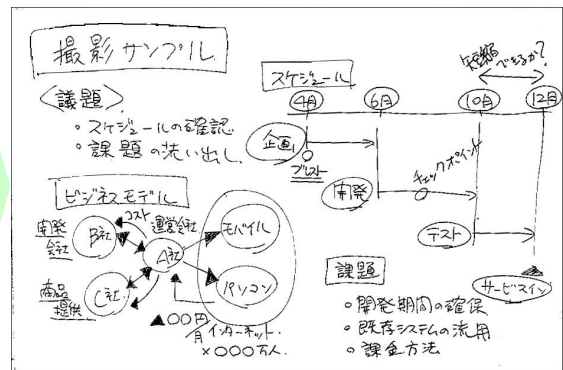 撮影サンプル
<議題>
・スケジュールの確認
・課題の洗い出し
ビジネスモデル
開発会社
B社
コスト
運営会社
A社
モバイル
商品提供
C社
パソコン
▲○○円/月
インターネット
×○○○万人
スケジュール
短縮できるか?
4月
6月
10月
12月
企画
ブレスト
開発
チェックポイント
テスト
サービスイン
課題
○開発期間の確保
○既存システムの流用
○課金方法